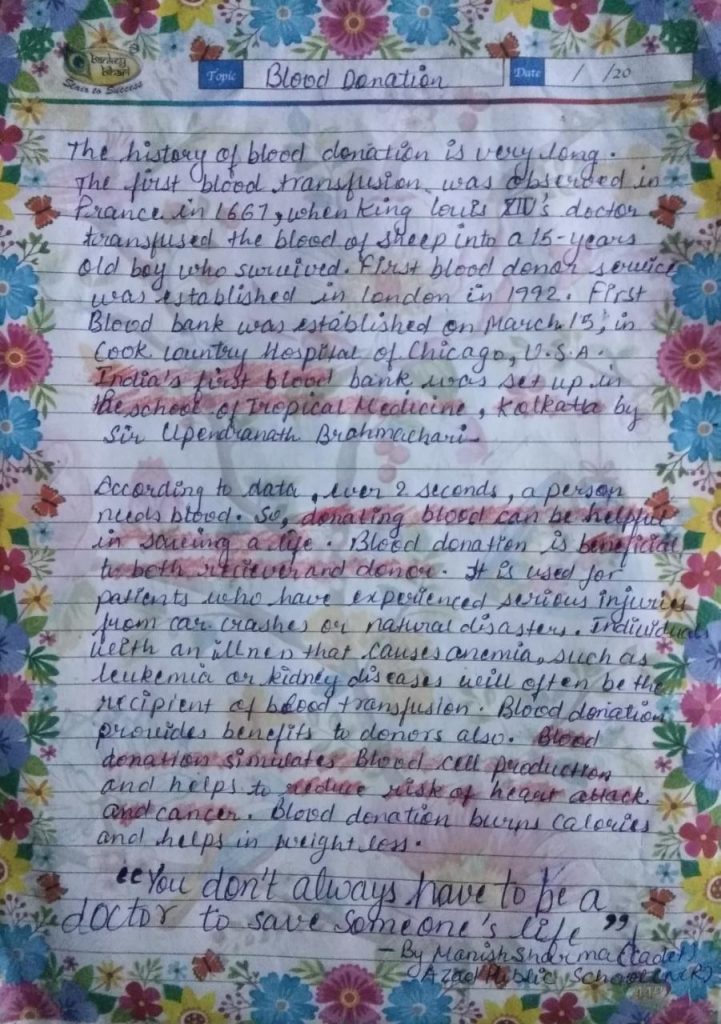 bankey bihari
Stair to Success
Topic Blood Donation Date / /20
The history of blood donation is very long.
The first blood transfusion was observed in
France in 1667, when King louis XIV's doctor
transfused the blood of sheep into a 15-years
old boy who survived. First blood donor service
was established in london in 1992. First
Blood bank was established on March 15, in
Cook Country Hospital of Chicago, U.S.A.
India's first blood bank was set up in
the school of Tropical Medicine, Kolkatta by
Sir Upendranath Brahmachari.
According to data, ever 2 seconds, a person
needs blood. So, donating blood can be helpful
in saveing a life. Blood donation is beneficial
to both reciever and donor. It is used for
patients who have experienced serious injuries
from car crashes or natural disasters. Individuals
with an illness that causes anemia, such as
leukemia or kidney diseases will often be the
recipient of blood transfusion. Blood donation
provides benefits to donors also. Blood
donation simulates Blood cell production
and helps to reduce risk of heart attack
and cancer. Blood donation burns calories
and helps in weight loss.
"You don't always have to be a
doctor to save someone's life"
- By Manish Sharma (Cadet)
Azad Public School